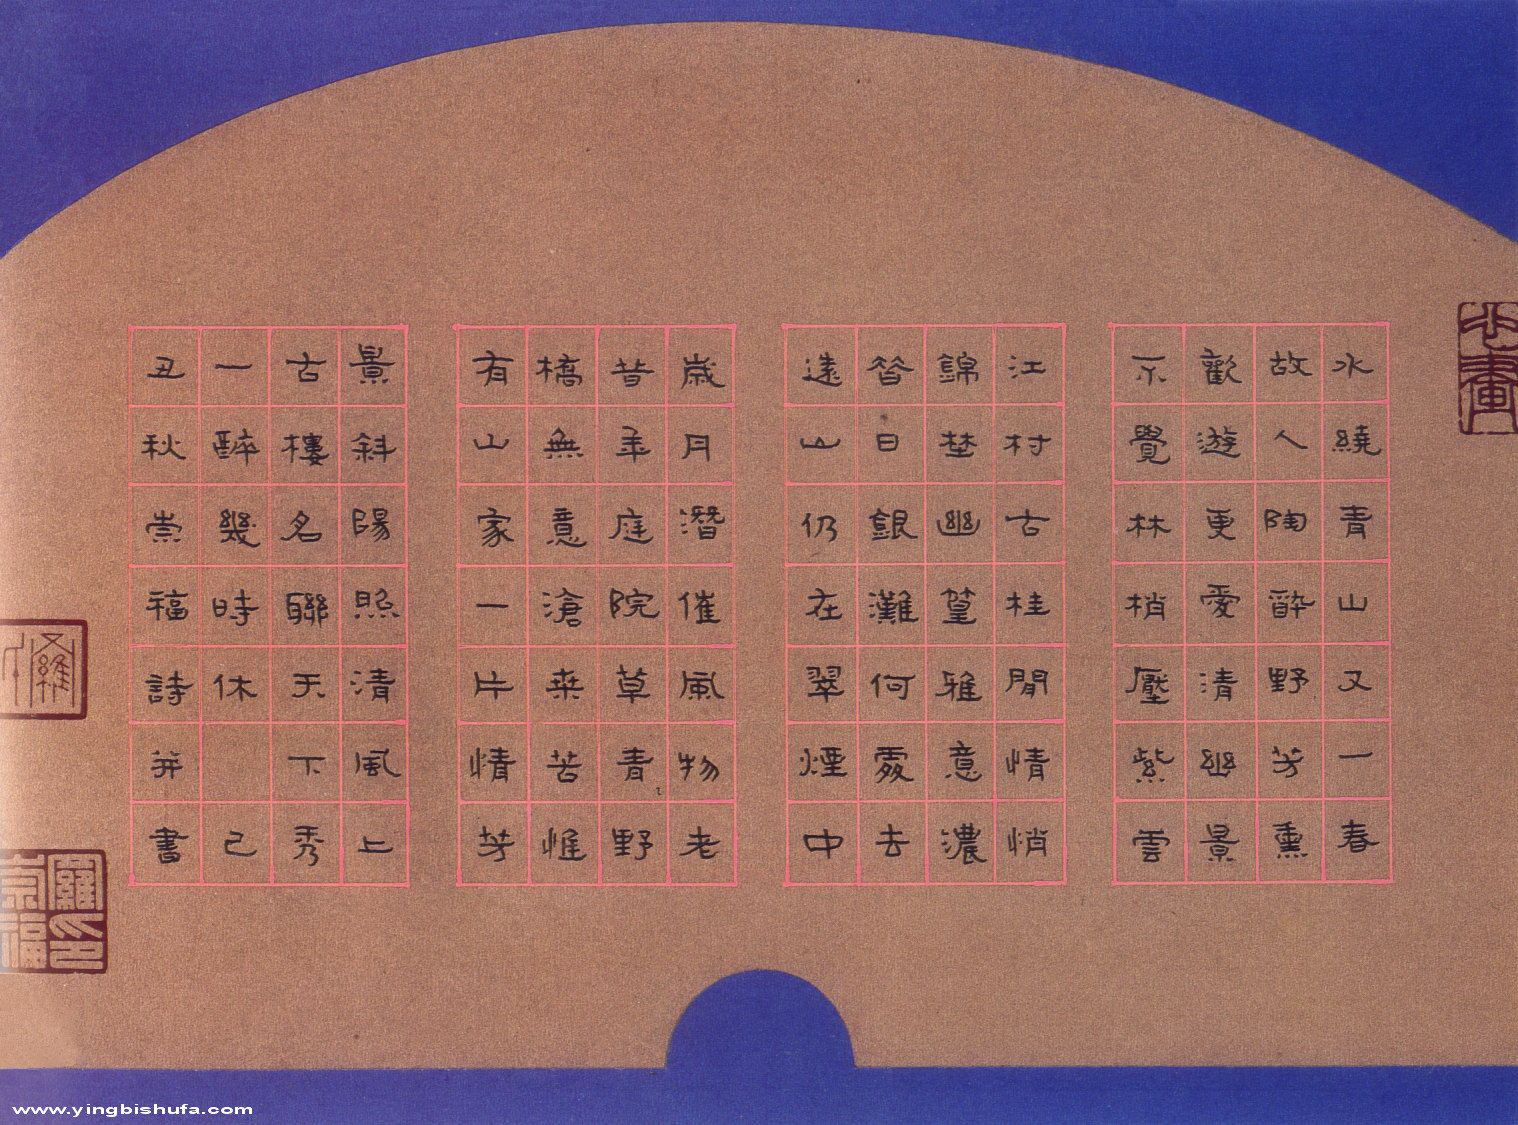 水繞青山又一春
故人陶醉野芳熏
歡遊更愛清幽景
不覺林梢壓紫雲
江村古桂閒情悄
錦埜幽篁雅意濃
昔日銀灘何處去
遠山仍在翠煙中
歲月潛催風物老
昔年庭院草青野
橋無意滄桑苦惟
有山家一片情芳
景斜陽照清風上
古樓名聯天下秀
一醉幾時休 己
丑秋崇福詩并書
羅崇福印
www.yingbishufa.com